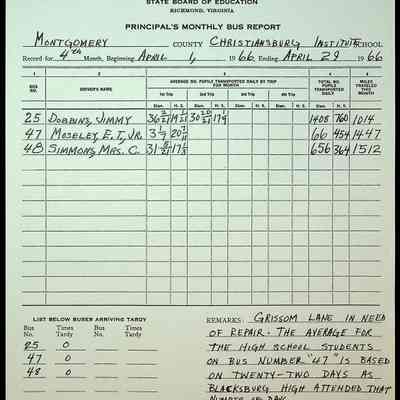 STATE BOARD OF EDUCATION
RICHMOND, VIRGINIA
PRINCIPAL'S MONTHLY BUS REPORT
MONTGOMERY COUNTY CHRISTIANSBURG INSTITUTE SCHOOL
Record for 4th Month, Beginning APRIL 1, 1966, Ending APRIL 29 1966
1 2 3 4 5
BUS NO. DRIVER'S NAME AVERAGE NO. PUPILS TRANSPORTED DAILY BY TRIP FOR MONTH TOTAL NO. PUPILS TRANSPORTED DAILY MILES TRAVELED THIS MONTH
1st Trip 2nd Trip 3rd Trip 4th Trip
Elem. H. S. Elem. H. S. Elem. H. S. Elem. H. S. Elem. H. S.
25 DOBBINS, JIMMY 1408 760 1014
47 MOSELEY, E. T., JR. 66 454 1447
48 SIMMONS, MRS. C. 656 364 1512
LIST BELOW BUSES ARRIVING TARDY
Bus No. Times Tardy Bus No. Times Tardy
25 0
47 0
48 0
REMARKS: GRISSOM LANE IN NEED
OF REPAIR. THE AVERAGE FOR
THE HIGH SCHOOL STUDENTS
ON BUS NUMBER "47" IS BASED
ON TWENTY-TWO DAYS AS
BLACKSBURG HIGH ATTENDED THAT
NUMBER OF DAYS